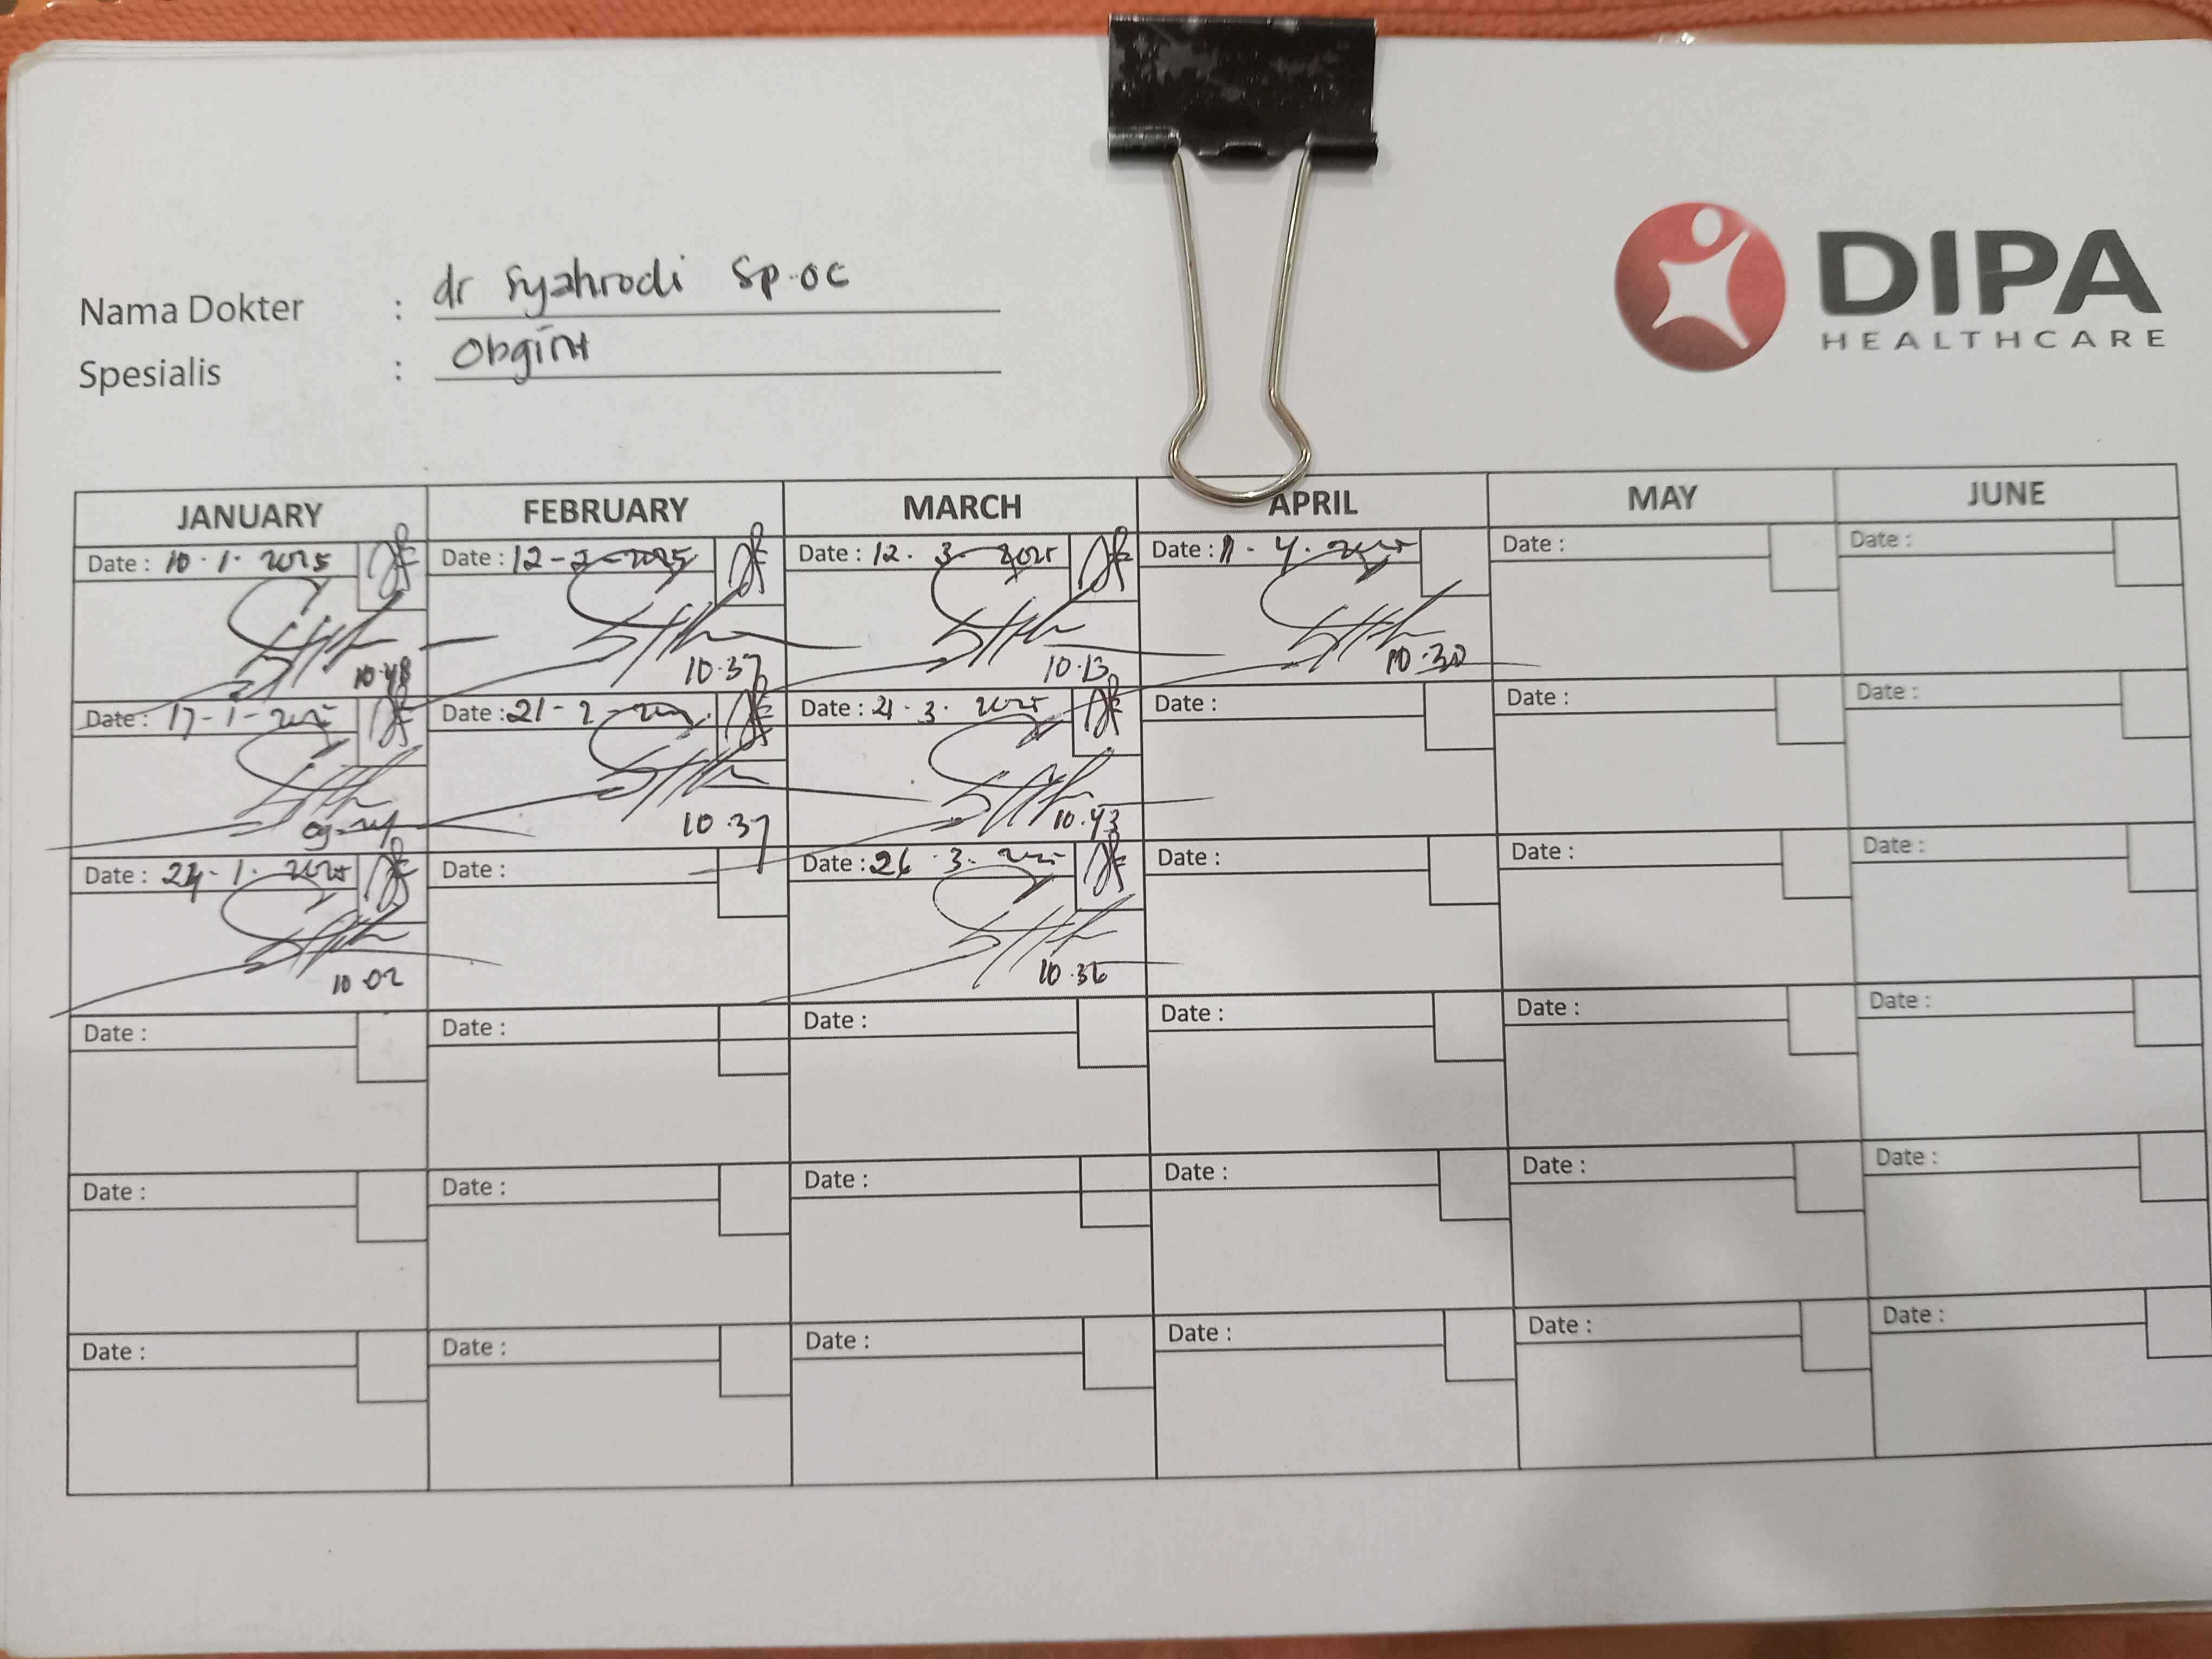 DIPA
HEALTHCARE
Nama Dokter : dr Syahrodi Sp.OG
Spesialis : Obgin
JANUARY FEBRUARY MARCH APRIL MAY JUNE
Date : 10.1.2025 Date : 12-2-2025 Date : 12.3.2025 Date : 11.4.2025 Date : Date :
10.48 10.37 10.13 10.30
Date : 17-1-2025 Date : 21-2- Date : 21.3.2025 Date : Date : Date :
10.37 10.43
Date : 24-1.2025 Date : Date : 26.3. Date : Date : Date :
10.02 10.36
Date : Date : Date : Date : Date : Date :
Date : Date : Date : Date : Date : Date :
Date : Date : Date : Date : Date : Date :